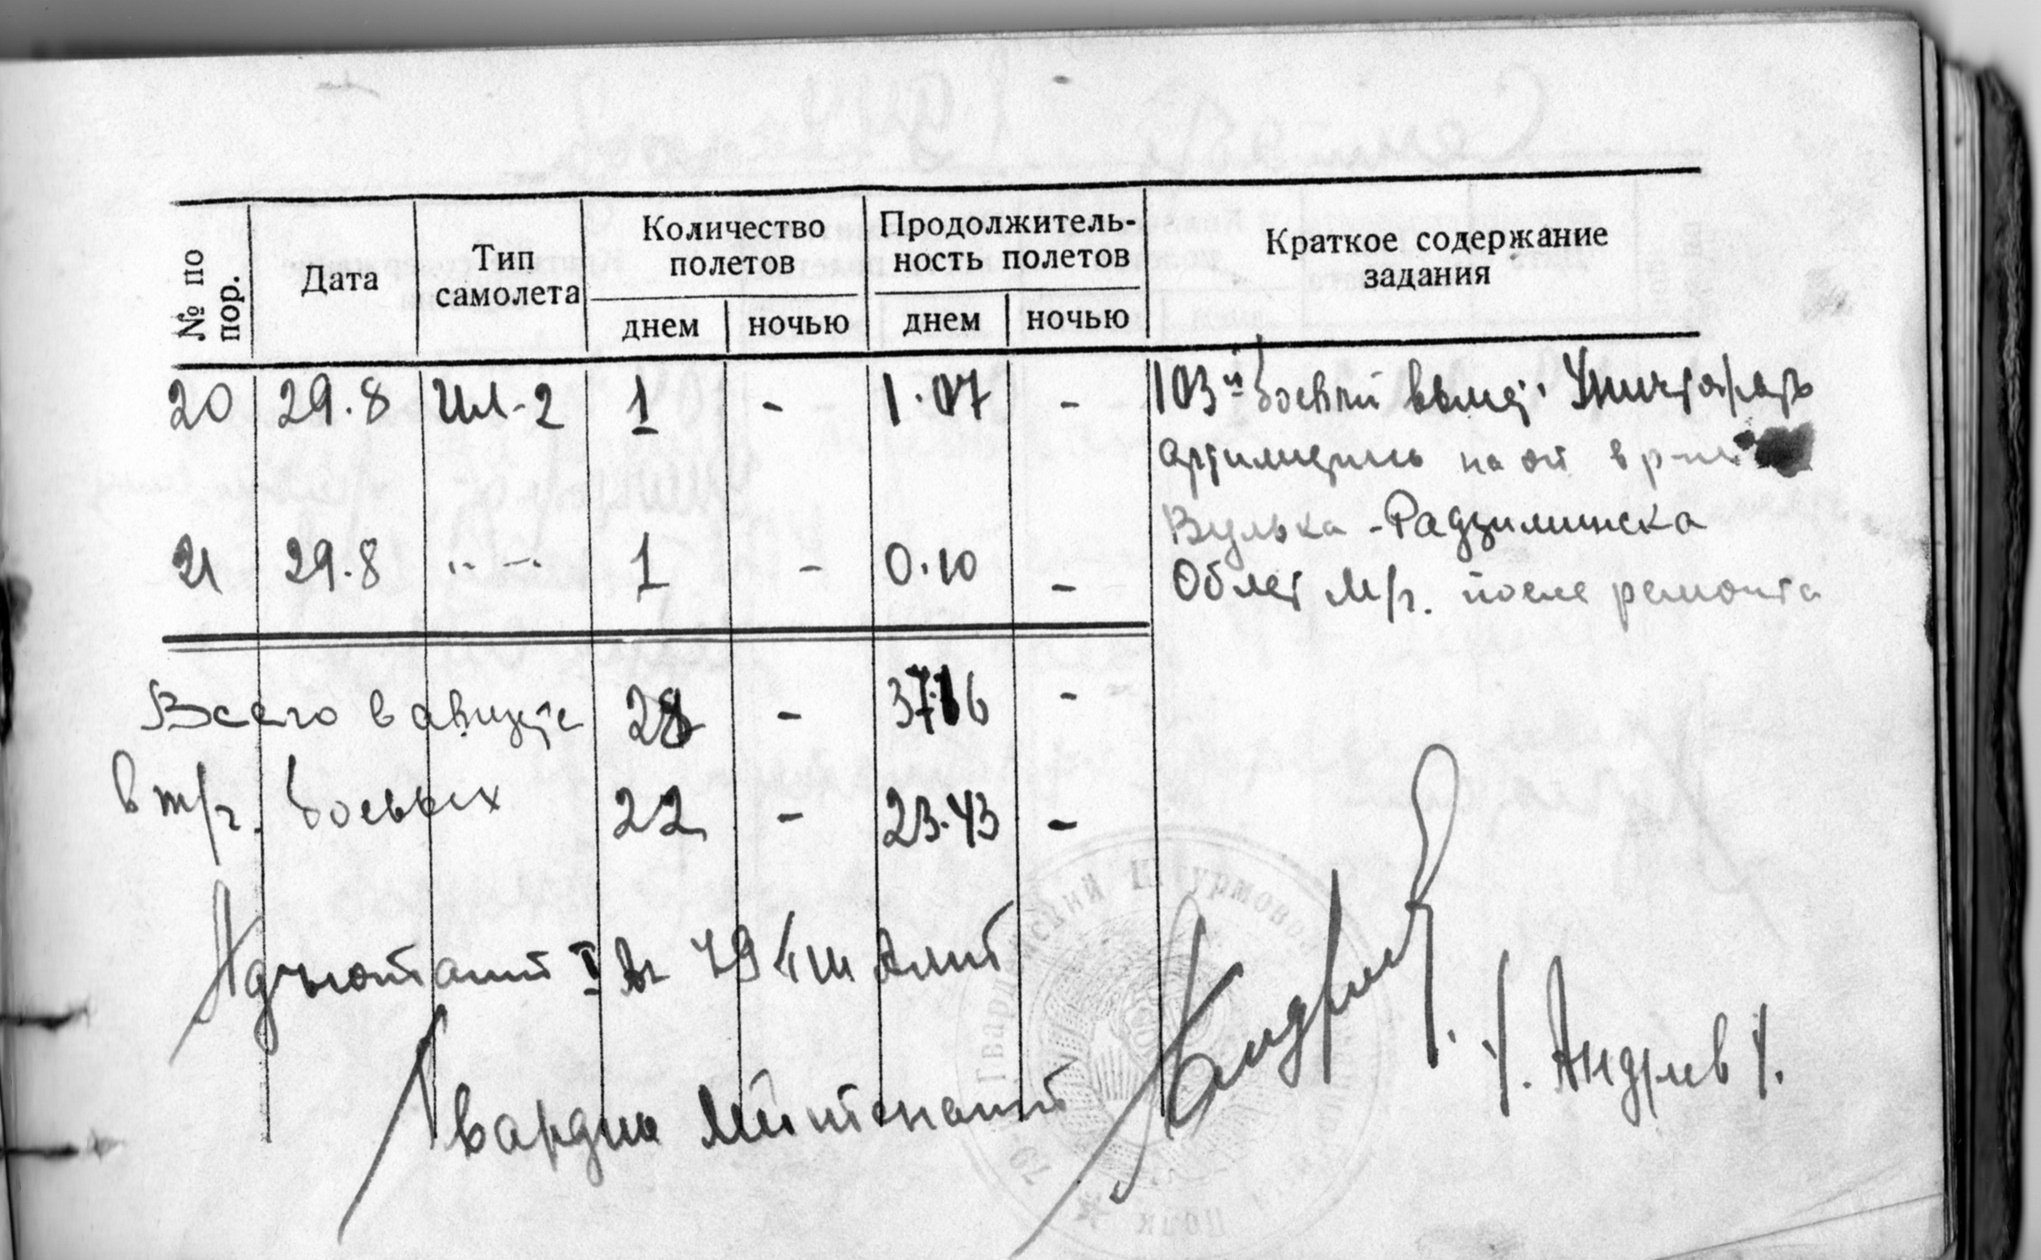 № по пор. Дата Тип самолета Количество полетов Продолжительность полетов Краткое содержание задания
днем ночью днем ночью
20 29.8 Ил-2 1 - 1.07 - 103й боевой вылет. Уничтожать
артиллерию на оп в р-не
Вулька - Радзилинска
21 29.8 〃 — 〃 1 - 0.10 - Облет м/ч. после ремонта
Всего в августе 28 - 37.16 -
в т/ч. боевых 22 - 23.43 -
Адъютант I 79 Гвардейский Штурмовой
Гвардии Лейтенант / Андреев /.
79 полк